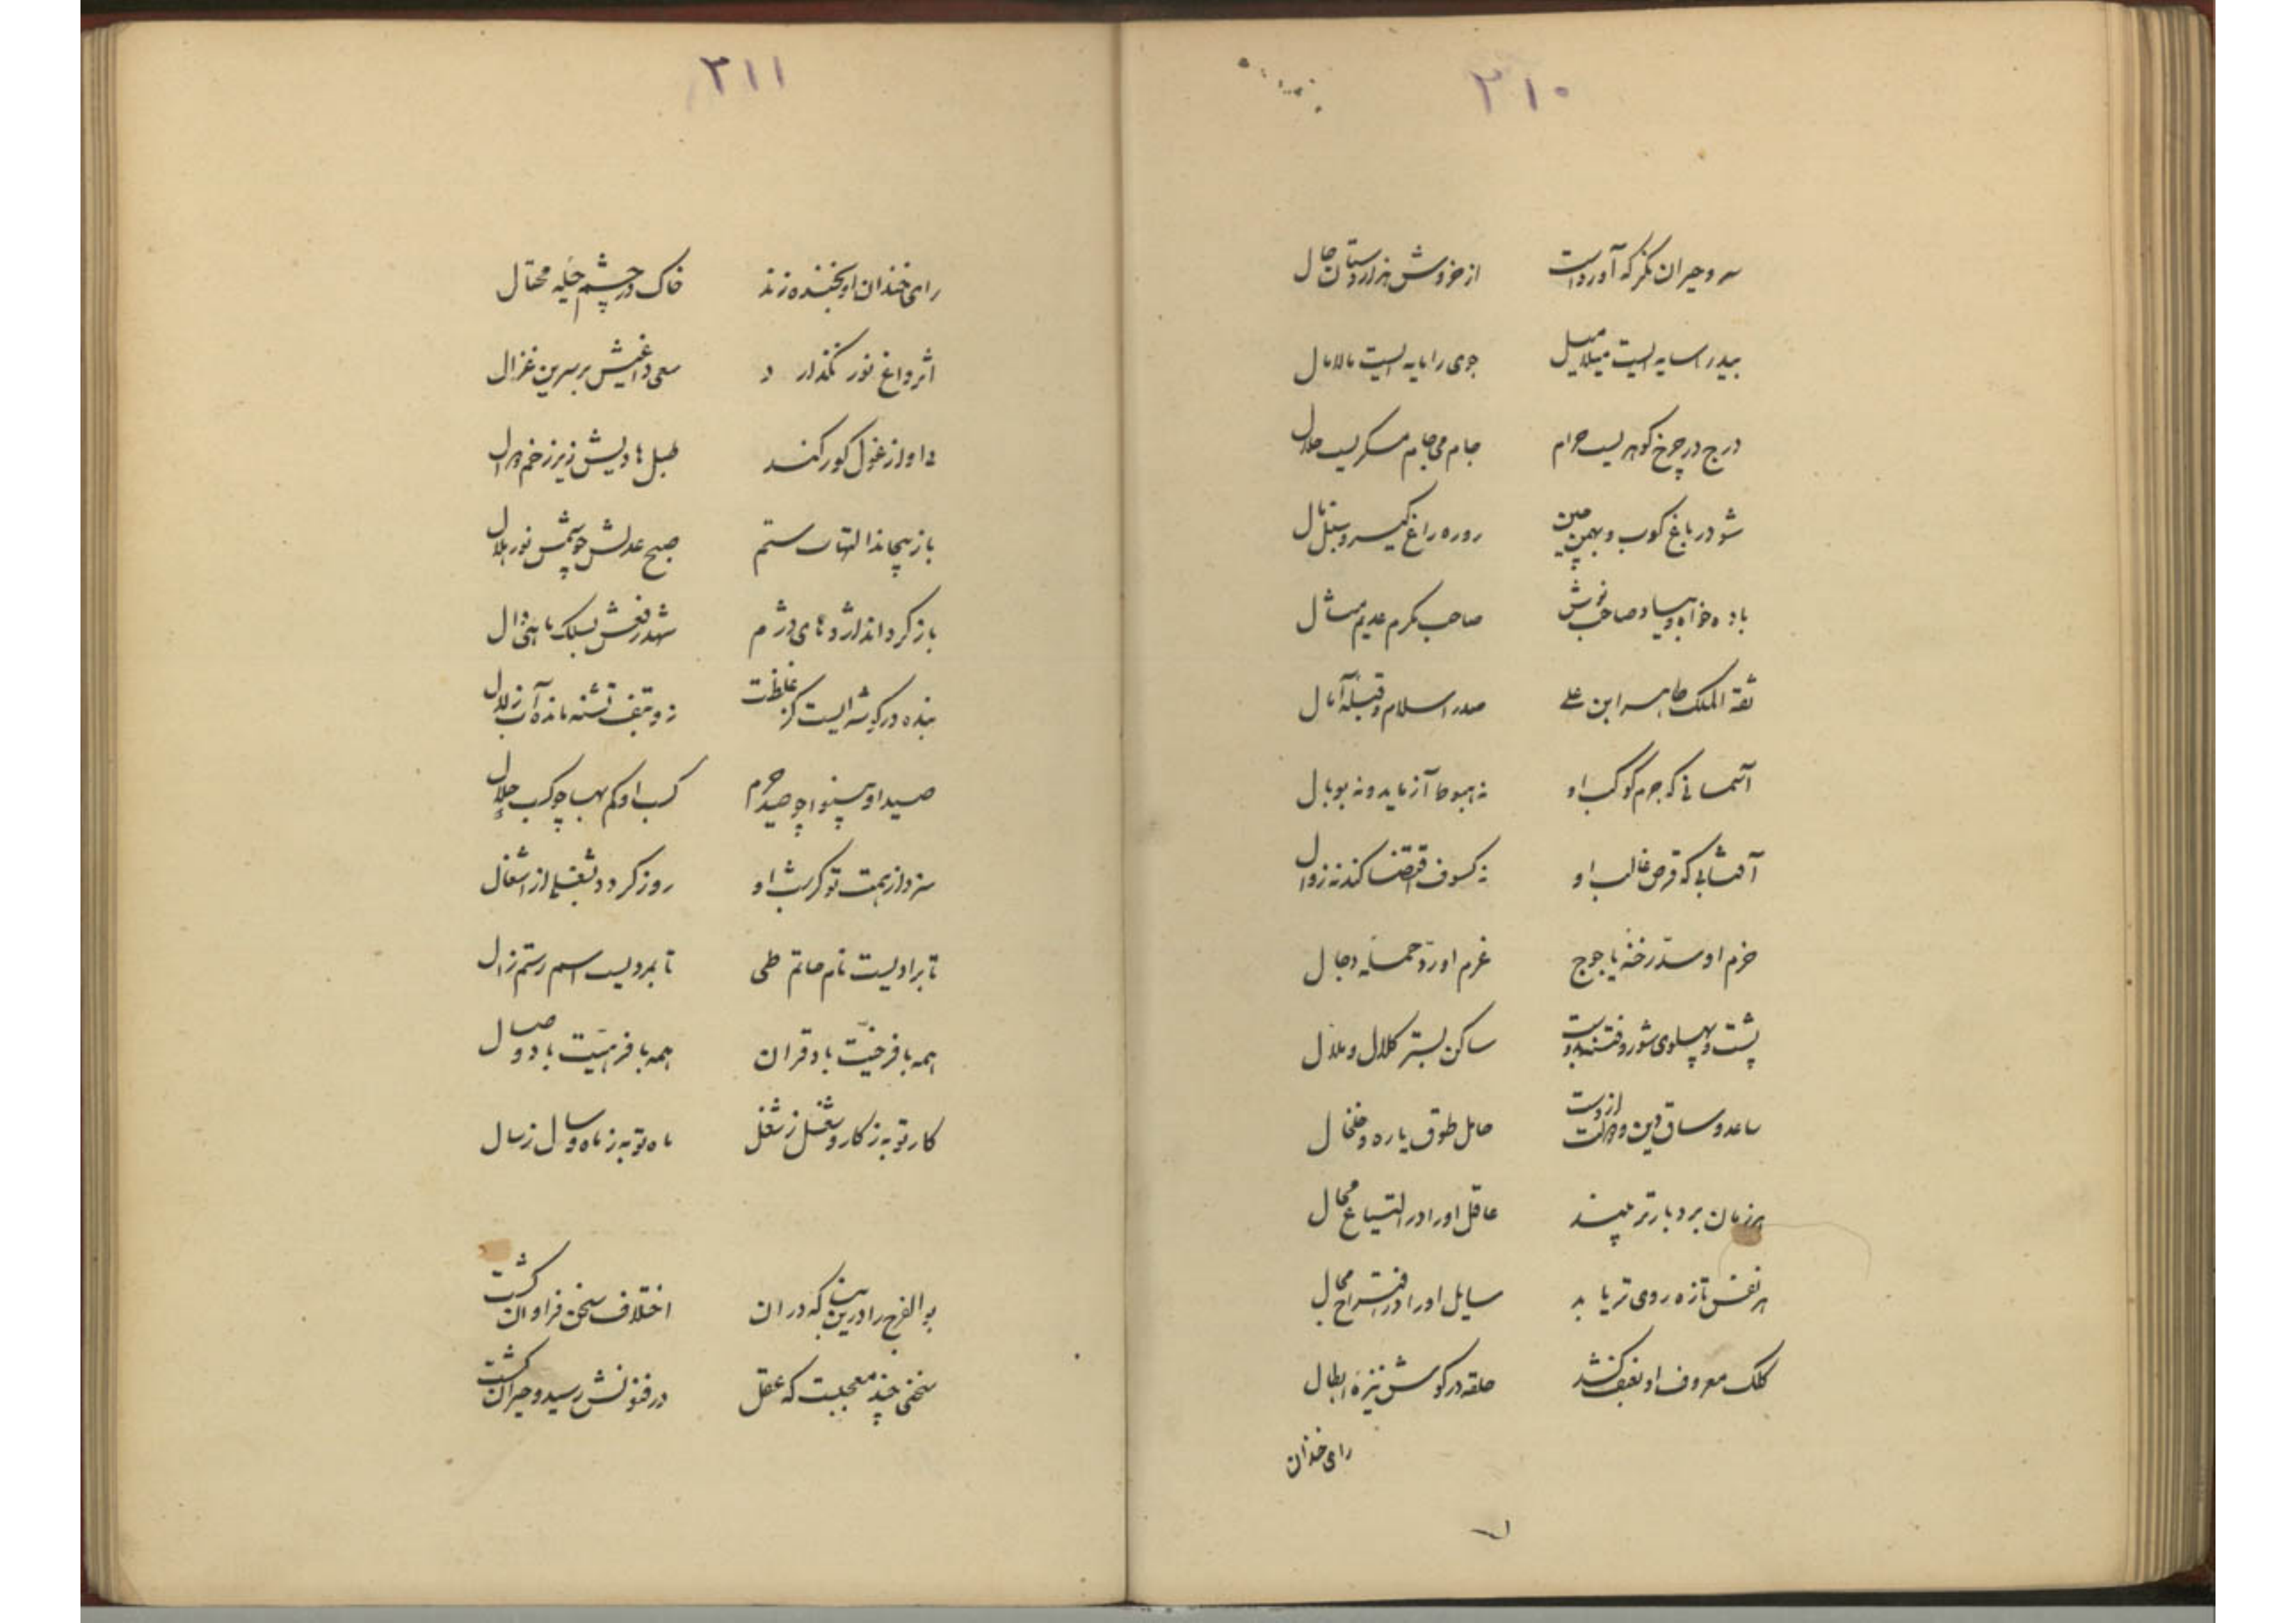 ۳۱۰
سرو حیران نگر که آورداست از خروش هزاردستان حال
بید را سایه ایست میلامیل جوی را مایه ایست مالامال
درج در چرخ گوهریست حرام جام می جام مسکریست حلال
شو در باغ کوب و بهمن بین رو ره راغ گیر و سنبل مال
باده خواه و بیاد صاحب نوش صاحب مکرم عدیم مثال
ثقة الملک طاهر ابن علی صدر اسلام و قبلهٔ آمال
آسمانی که جرم کوکب او نه هبوط آزماید و نه وبال
آفتابی که قرص غالب او نه کسوف اقتضا کند نه زوال
حزم او سد رخنهٔ یاجوج عزم او رد حملهٔ دجال
پشت و پهلوی شور و فتنه بدوست ساکن بستر کلال و ملال
ساعد و ساق دین و دولت ازوست حامل طوق یاره و خلخال
هر زمان بردبارتر بیند عاقل او را در اتساع مجال
هر نفس تازه روی تر یابد سایل او را در اقتراح محال
کلک معروف او بغف کشد حلقه در گوش نیزهٔ ابطال
رای خندان
۳۱۱
رای خندان او بخنده زند خاک در چشم حیلهٔ محتال
اثر داغ نور نگذارد سعی داغیش بر سرین غزال
ده او از غول کور کند طبل بادیش زیر زخم دوال
باز پیچاند التهاب ستم صبح عدلش چو شمس نور هلال
باز گرداند اژدهای دژم شهد رفقش بسلک ماهی دال
بنده در گوشه ایست کز غلظت زو تف تشنه مانده آب زلال
صید او بینوا چو صید حرم کسب او کم بها چو کسب حلال
سزد از همت تو گر شب او روز گردد بشغلی از اشغال
تا برادیست نام حاتم طی تا بمردیست اسم رستم زال
همه با فرخیت باد قران همه با فرهیت باد وصال
کار تو به ز کار و شغل ز شغل ماه تو به ز ماه و سال ز سال
بوالفرج را درین بنا که در آن اختلاف سخن فراوان گشت
سخنی چند معجبست که عقل در فنونش رسید و حیران گشت